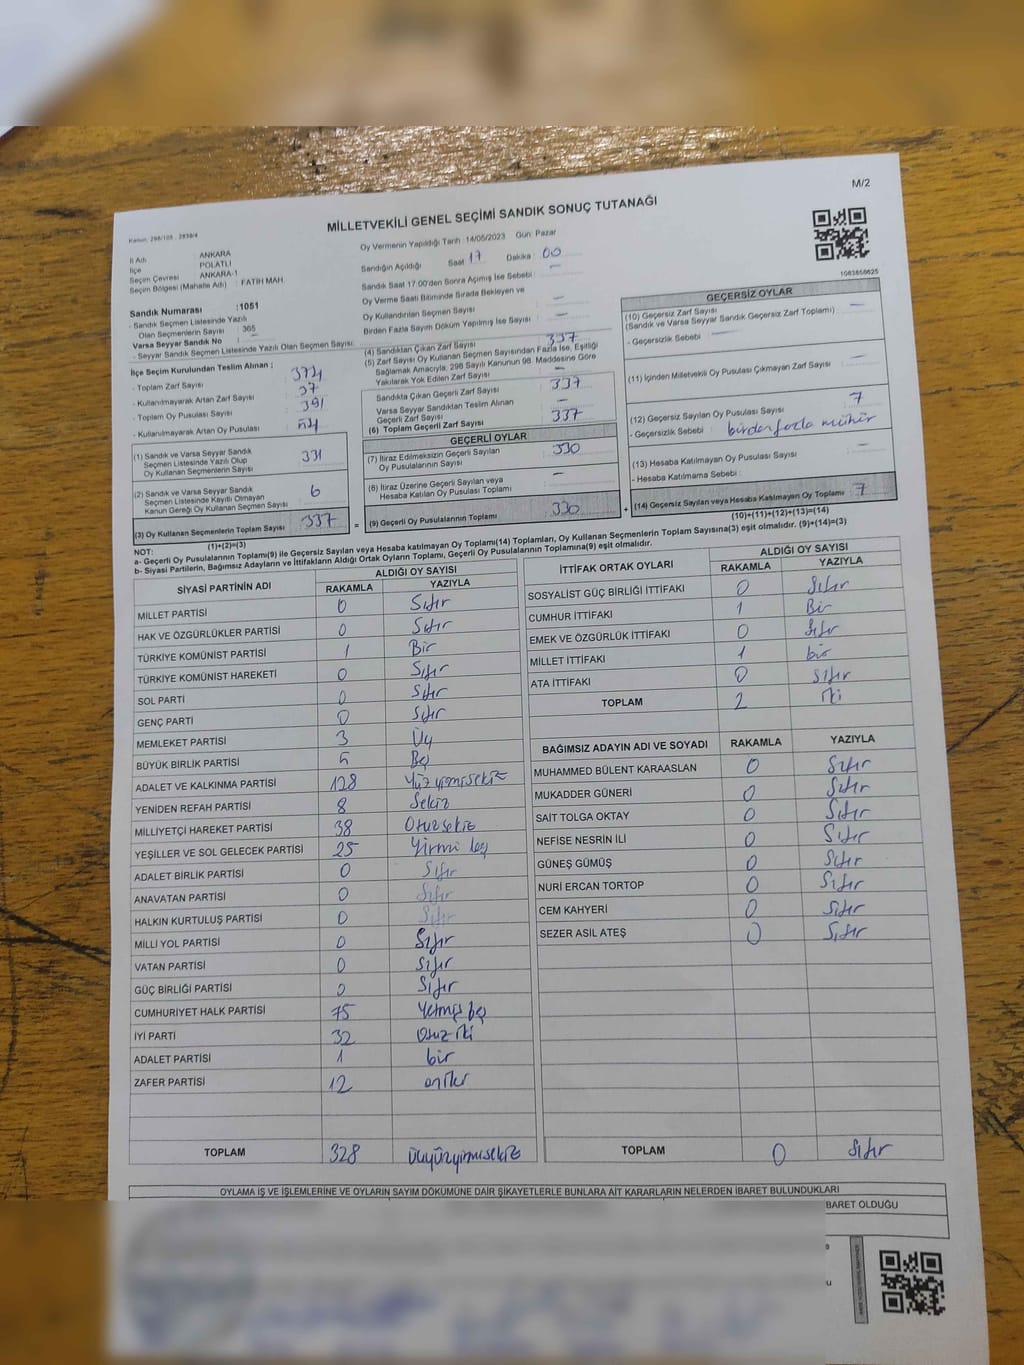 M/2
MİLLETVEKİLİ GENEL SEÇİMİ SANDIK SONUÇ TUTANAĞI
Oy Vermenin Yapıldığı Tarih : 14/05/2023 Gün: Pazar
İl Adı ANKARA
İlçe POLATLI
Seçim Çevresi ANKARA-1
Seçim Bölgesi (Mahalle Adı) : FATİH MAH.
Sandığın Açıldığı Saat 17 Dakika : 00
Sandık Saat 17:00'den Sonra Açılmış İse Sebebi : —
Oy Verme Saati Bitiminde Sırada Bekleyen ve
Oy Kullandırılan Seçmen Sayısı : —
Birden Fazla Sayım Döküm Yapılmış İse Sayısı : —
1083858625
Sandık Numarası :1051
- Sandık Seçmen Listesinde Yazılı
Olan Seçmenlerin Sayısı : 365
Varsa Seyyar Sandık No : —
- Seyyar Sandık Seçmen Listesinde Yazılı Olan Seçmen Sayısı:
İlçe Seçim Kurulundan Teslim Alınan ;
- Toplam Zarf Sayısı : 374
- Kullanılmayarak Artan Zarf Sayısı : 37
- Toplam Oy Pusulası Sayısı : 391
- Kullanılmayarak Artan Oy Pusulası : 54
(1) Sandık ve Varsa Seyyar Sandık
Seçmen Listesinde Yazılı Olup
Oy Kullanan Seçmenlerin Sayısı 331
(2) Sandık ve Varsa Seyyar Sandık
Seçmen Listesinde Kayıtlı Olmayan
Kanun Gereği Oy Kullanan Seçmen Sayısı 6
(3) Oy Kullanan Seçmenlerin Toplam Sayısı 337
(1)+(2)=(3)
(4) Sandıktan Çıkan Zarf Sayısı 337
(5) Zarf Sayısı Oy Kullanan Seçmen Sayısından Fazla İse, Eşitliği
Sağlamak Amacıyla, 298 Sayılı Kanunun 98. Maddesine Göre
Yakılarak Yok Edilen Zarf Sayısı : —
Sandıkta Çıkan Geçerli Zarf Sayısı : 337
Varsa Seyyar Sandıktan Teslim Alınan
Geçerli Zarf Sayısı : —
(6) Toplam Geçerli Zarf Sayısı : 337
GEÇERLİ OYLAR
(7) İtiraz Edilmeksizin Geçerli Sayılan
Oy Pusulalarının Sayısı 330
(8) İtiraz Üzerine Geçerli Sayılan veya
Hesaba Katılan Oy Pusulası Toplamı —
= (9) Geçerli Oy Pusulalarının Toplamı 330 +
GEÇERSİZ OYLAR
(10) Geçersiz Zarf Sayısı : —
(Sandık ve Varsa Seyyar Sandık Geçersiz Zarf Toplamı)
- Geçersizlik Sebebi : —
(11) İçinden Milletvekili Oy Pusulası Çıkmayan Zarf Sayısı : —
(12) Geçersiz Sayılan Oy Pusulası Sayısı : 7
- Geçersizlik Sebebi : birden fazla mühür
(13) Hesaba Katılmayan Oy Pusulası Sayısı : —
- Hesaba Katılmama Sebebi :
(14) Geçersiz Sayılan veya Hesaba Katılmayan Oy Toplamı : 7
(10)+(11)+(12)+(13)=(14)
NOT:
a- Geçerli Oy Pusulalarının Toplamı(9) ile Geçersiz Sayılan veya Hesaba katılmayan Oy Toplamı(14) Toplamları, Oy Kullanan Seçmenlerin Toplam Sayısına(3) eşit olmalıdır. (9)+(14)=(3)
b- Siyasi Partilerin, Bağımsız Adayların ve İttifakların Aldığı Ortak Oyların Toplamı, Geçerli Oy Pusulalarının Toplamına(9) eşit olmalıdır.
SİYASİ PARTİNİN ADI ALDIĞI OY SAYISI
RAKAMLA YAZIYLA
MİLLET PARTİSİ 0 Sıfır
HAK VE ÖZGÜRLÜKLER PARTİSİ 0 Sıfır
TÜRKİYE KOMÜNİST PARTİSİ 1 Bir
TÜRKİYE KOMÜNİST HAREKETİ 0 Sıfır
SOL PARTİ 0 Sıfır
GENÇ PARTİ 0 Sıfır
MEMLEKET PARTİSİ 3 Üç
BÜYÜK BİRLİK PARTİSİ 5 Beş
ADALET VE KALKINMA PARTİSİ 128 Yüz yirmisekiz
YENİDEN REFAH PARTİSİ 8 Sekiz
MİLLİYETÇİ HAREKET PARTİSİ 38 Otuzsekiz
YEŞİLLER VE SOL GELECEK PARTİSİ 25 Yirmi beş
ADALET BİRLİK PARTİSİ 0 Sıfır
ANAVATAN PARTİSİ 0 Sıfır
HALKIN KURTULUŞ PARTİSİ 0 Sıfır
MİLLİ YOL PARTİSİ 0 Sıfır
VATAN PARTİSİ 0 Sıfır
GÜÇ BİRLİĞİ PARTİSİ 0 Sıfır
CUMHURİYET HALK PARTİSİ 75 Yetmiş beş
İYİ PARTİ 32 Otuz iki
ADALET PARTİSİ 1 bir
ZAFER PARTİSİ 12 oniki
TOPLAM 328 üçyüzyirmisekiz
İTTİFAK ORTAK OYLARI ALDIĞI OY SAYISI
RAKAMLA YAZIYLA
SOSYALİST GÜÇ BİRLİĞİ İTTİFAKI 0 Sıfır
CUMHUR İTTİFAKI 1 Bir
EMEK VE ÖZGÜRLÜK İTTİFAKI 0 Sıfır
MİLLET İTTİFAKI 1 bir
ATA İTTİFAKI 0 Sıfır
TOPLAM 2 iki
BAĞIMSIZ ADAYIN ADI VE SOYADI RAKAMLA YAZIYLA
MUHAMMED BÜLENT KARAASLAN 0 Sıfır
MUKADDER GÜNERİ 0 Sıfır
SAİT TOLGA OKTAY 0 Sıfır
NEFİSE NESRİN İLİ 0 Sıfır
GÜNEŞ GÜMÜŞ 0 Sıfır
NURİ ERCAN TORTOP 0 Sıfır
CEM KAHYERİ 0 Sıfır
SEZER ASİL ATEŞ 0 Sıfır
TOPLAM 0 Sıfır
OYLAMA İŞ VE İŞLEMLERİNE VE OYLARIN SAYIM DÖKÜMÜNE DAİR ŞİKAYETLERLE BUNLARA AİT KARARLARIN NELERDEN İBARET BULUNDUKLARI
BARET OLDUĞU